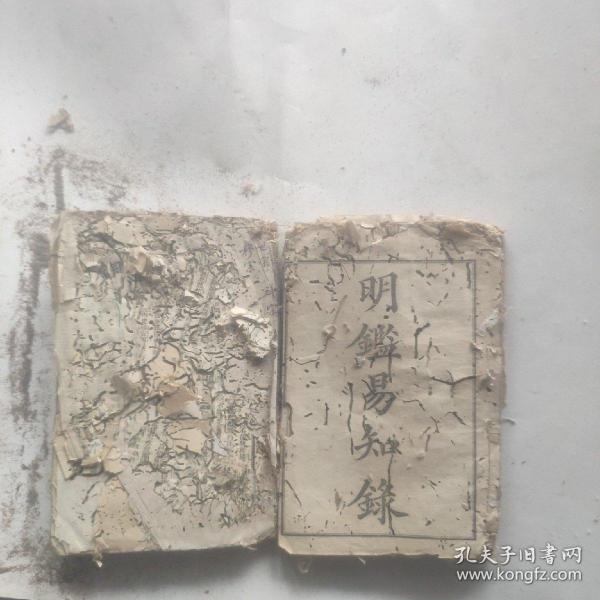 明鑑易知錄
孔夫子旧书网
www.kongfz.com